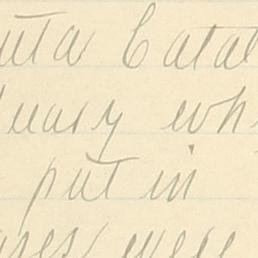 uta Catal
uary wh
put in
ases were